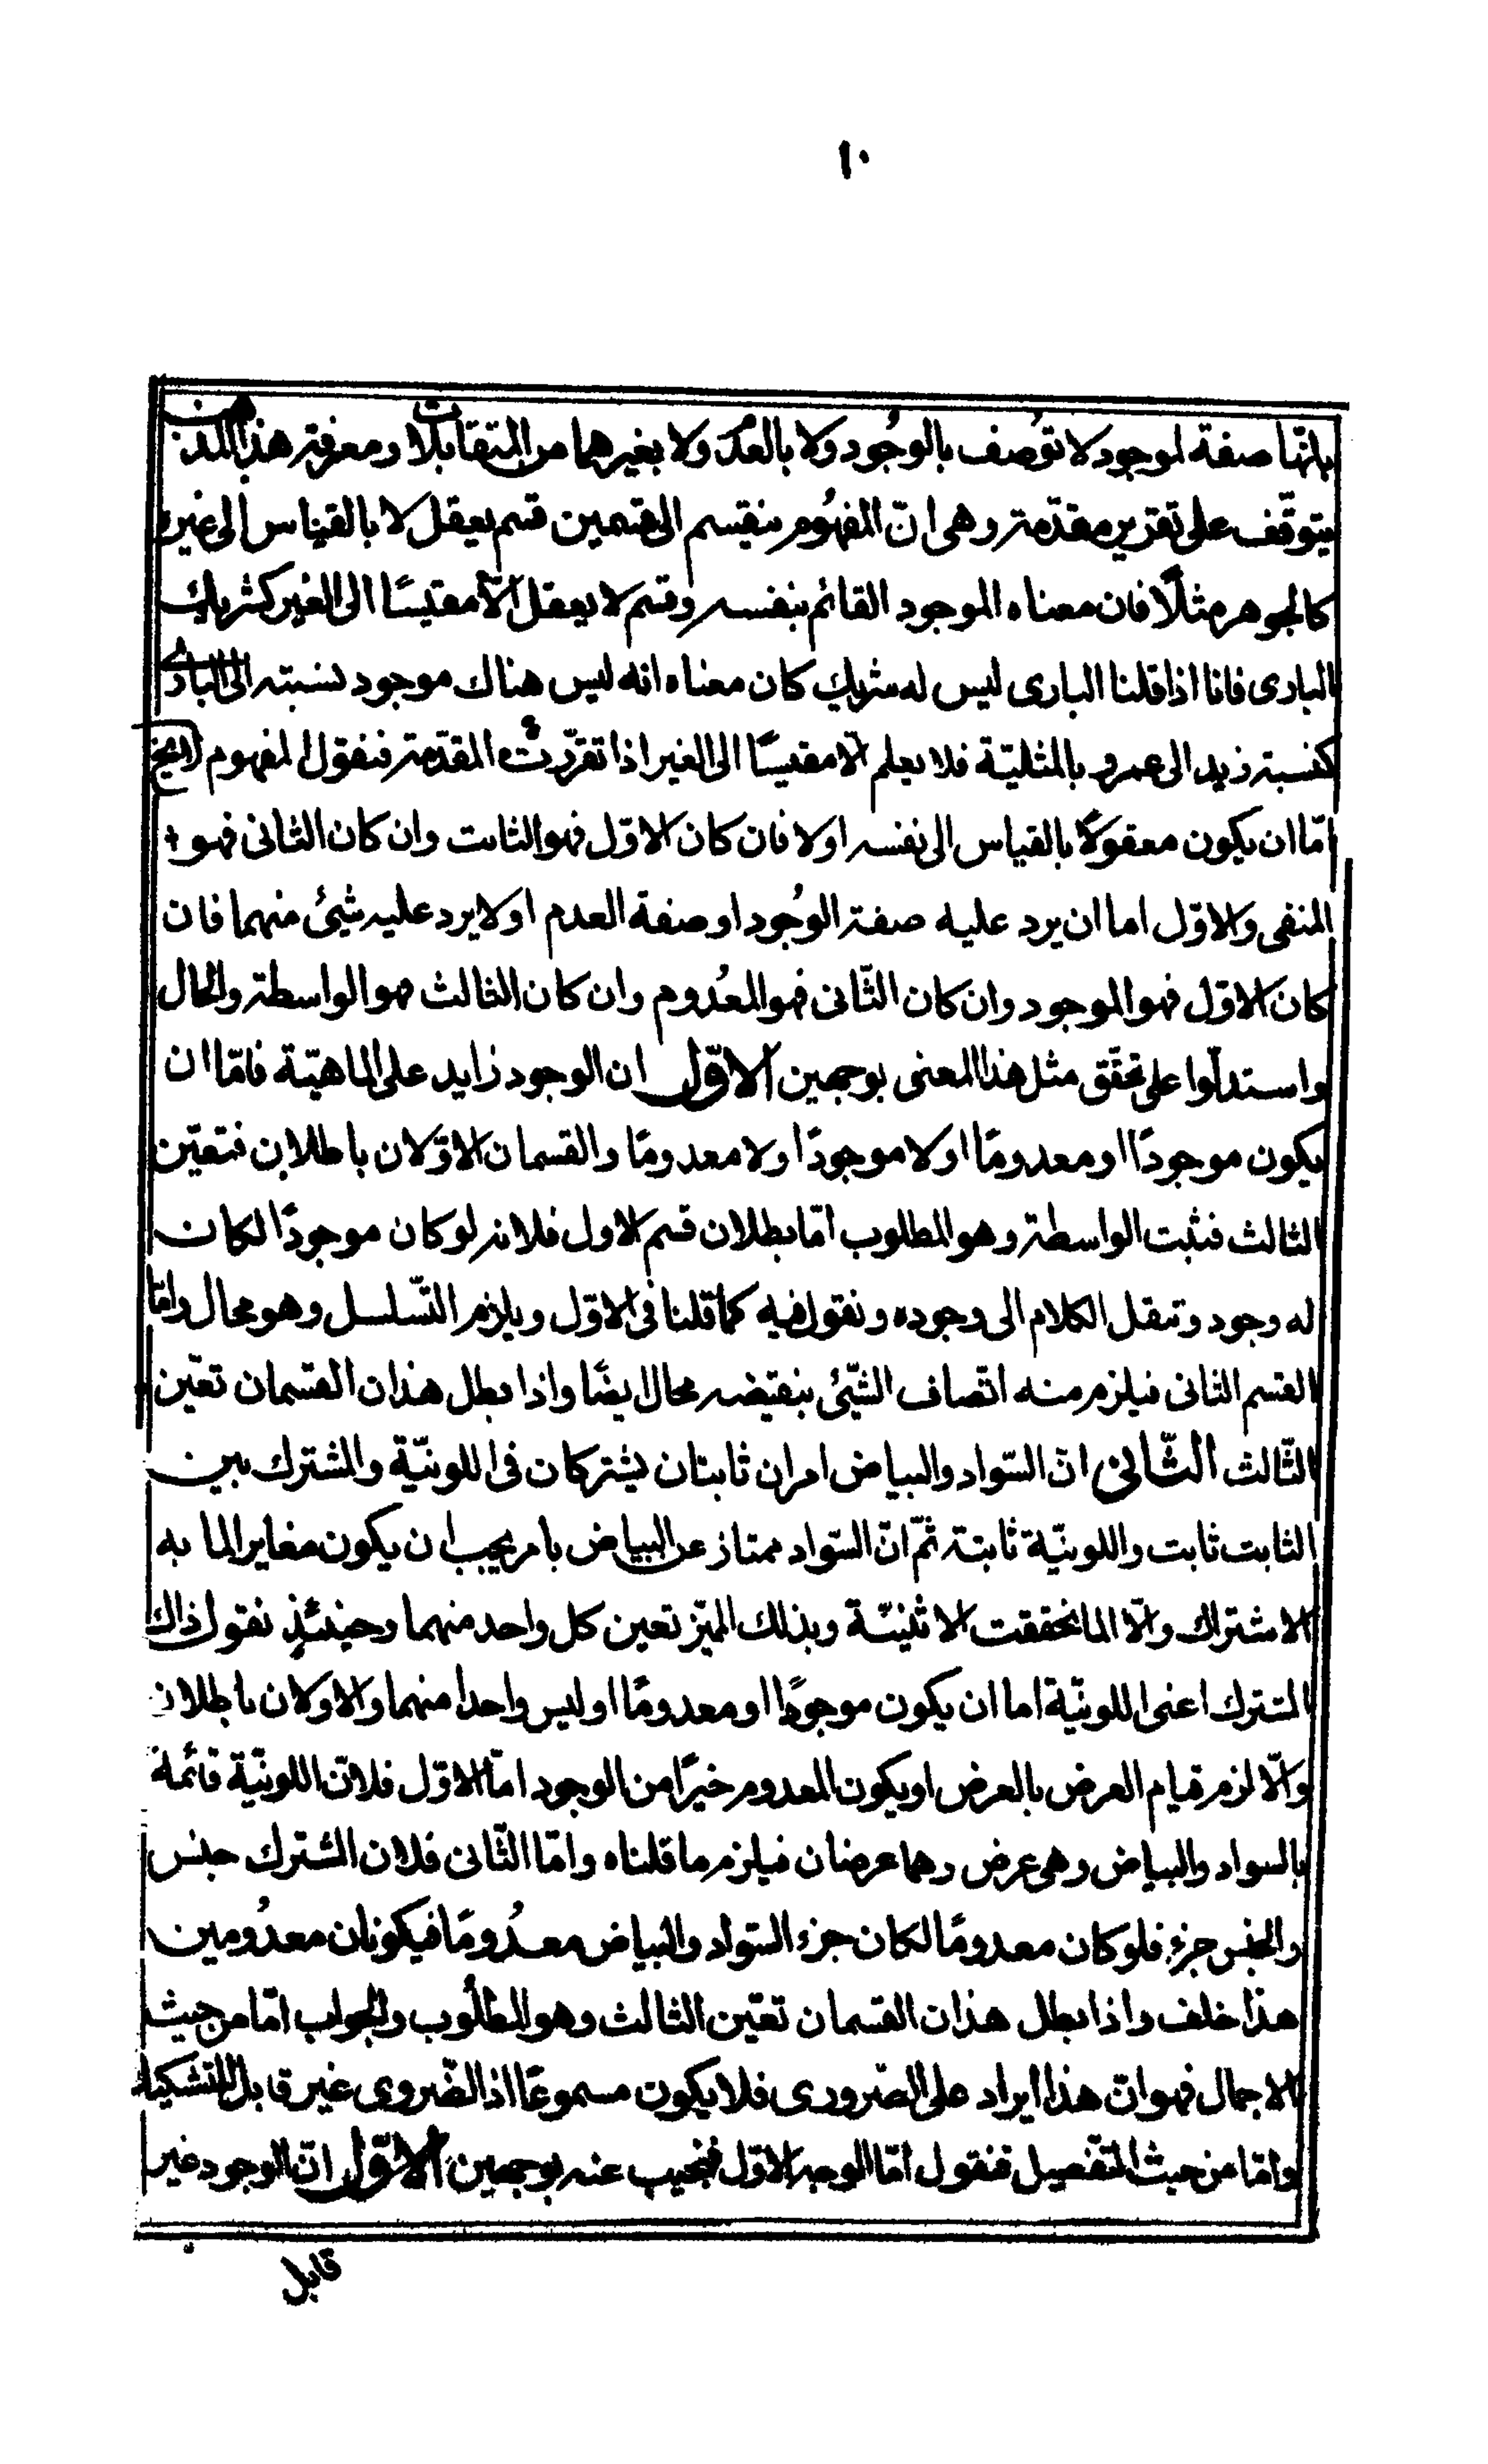 ١٠
بانّها صفة لموجود لا توصف بالوجُود ولا بالعدم ولا بغيرهما من المتقابلات ومعرفة هذا المذهب
يتوقّف على تقرير مقدّمة وهى انّ المفهُوم ينقسم الى قسمين قسم يعقل لا بالقياس الى غيره
كالجوهر مثلًا فان معناه الموجود القائم بنفسه وقسم لا يعقل الّا مقيسًا الى الغير كشريك
البارى فانا اذا قلنا البارى ليس له شريك كان معناه انه ليس هناك موجود نسبته الى البارى
كنسبة زيد الى عمرو بالمثليّة فلا يعلم الّا مقيسًا الى الغير اذا تقرّرت المقدّمة فنقول المفهوم
امّا ان يكون معقولًا بالقياس الى نفسه او لا فان كان الاوّل فهو الثابت وان كان الثانى فهو
المنفى والاوّل اما ان يرد عليه صفة الوجُود او صفة العدم او لا يرد عليه شيئ منهما فان
كان الاوّل فهو الموجود وان كان الثّانى فهو المعدُوم وان كان الثالث فهو الواسطة والحال
واستدلّوا على تحقّق مثل هذا المعنى بوجهين الاوّل ان الوجود زايد على الماهيّة فامّا ان
يكون موجودًا او معدومًا او لا موجودًا ولا معدومًا والقسمان الاوّلان باطلان فتعيّن
الثالث فثبت الواسطة وهو المطلوب امّا بطلان قسم الاول فلانه لو كان موجودًا لكان
له وجود وتنقل الكلام الى وجوده ونقول فيه كما قلنا فى الاوّل ويلزم التّسلسل وهو محال وامّا
القسم الثانى فيلزم منه اتّصاف الشّيئ بنقيضه محال ايضًا واذا بطل هذان القسمان تعيّن
الثّالث الثّانى انّ السّواد والبياض امران ثابتان يشتركان فى اللونيّة والمشترك بين
الثابت ثابت واللونيّة ثابتة ثمّ انّ السّواد ممتاز عن البياض بامر يجب ان يكون مغاير الما به
الاشتراك والّا لما تحققت الاثنينيّة وبذلك المميّز تعين كل واحد منهما وحينئذٍ نقول ذاك
المشترك اعنى اللونيّة اما ان يكون موجودًا او معدومًا او ليس واحدا منهما والاولان باطلان
والّا لزم قيام العرض بالعرض او يكون المعدوم خيرًا من الوجود امّا الاوّل فلانّ اللونيّة قائمة
بالسواد والبياض وهى عرض وهما عرضان فيلزم ما قلناه وامّا الثّانى فلان المشترك جنس
والجنس جزء فلو كان معدومًا لكان جزء السّواد والبياض معدُومًا فيكونان معدُومين
هذا خلف واذا بطل هذان القسمان تعيّن الثالث وهو المطلُوب والجواب امّا من حيث
الاجمال فهو انّ هذا ايراد على الضرورى فلا يكون مسموعًا اذ الضّروى غير قابل للتشكيك
وامّا من حيث التفصيل فنقول امّا الوجه الاوّل فنجيب عنه بوجهين الاوّل انّ الوجود غير
قابل